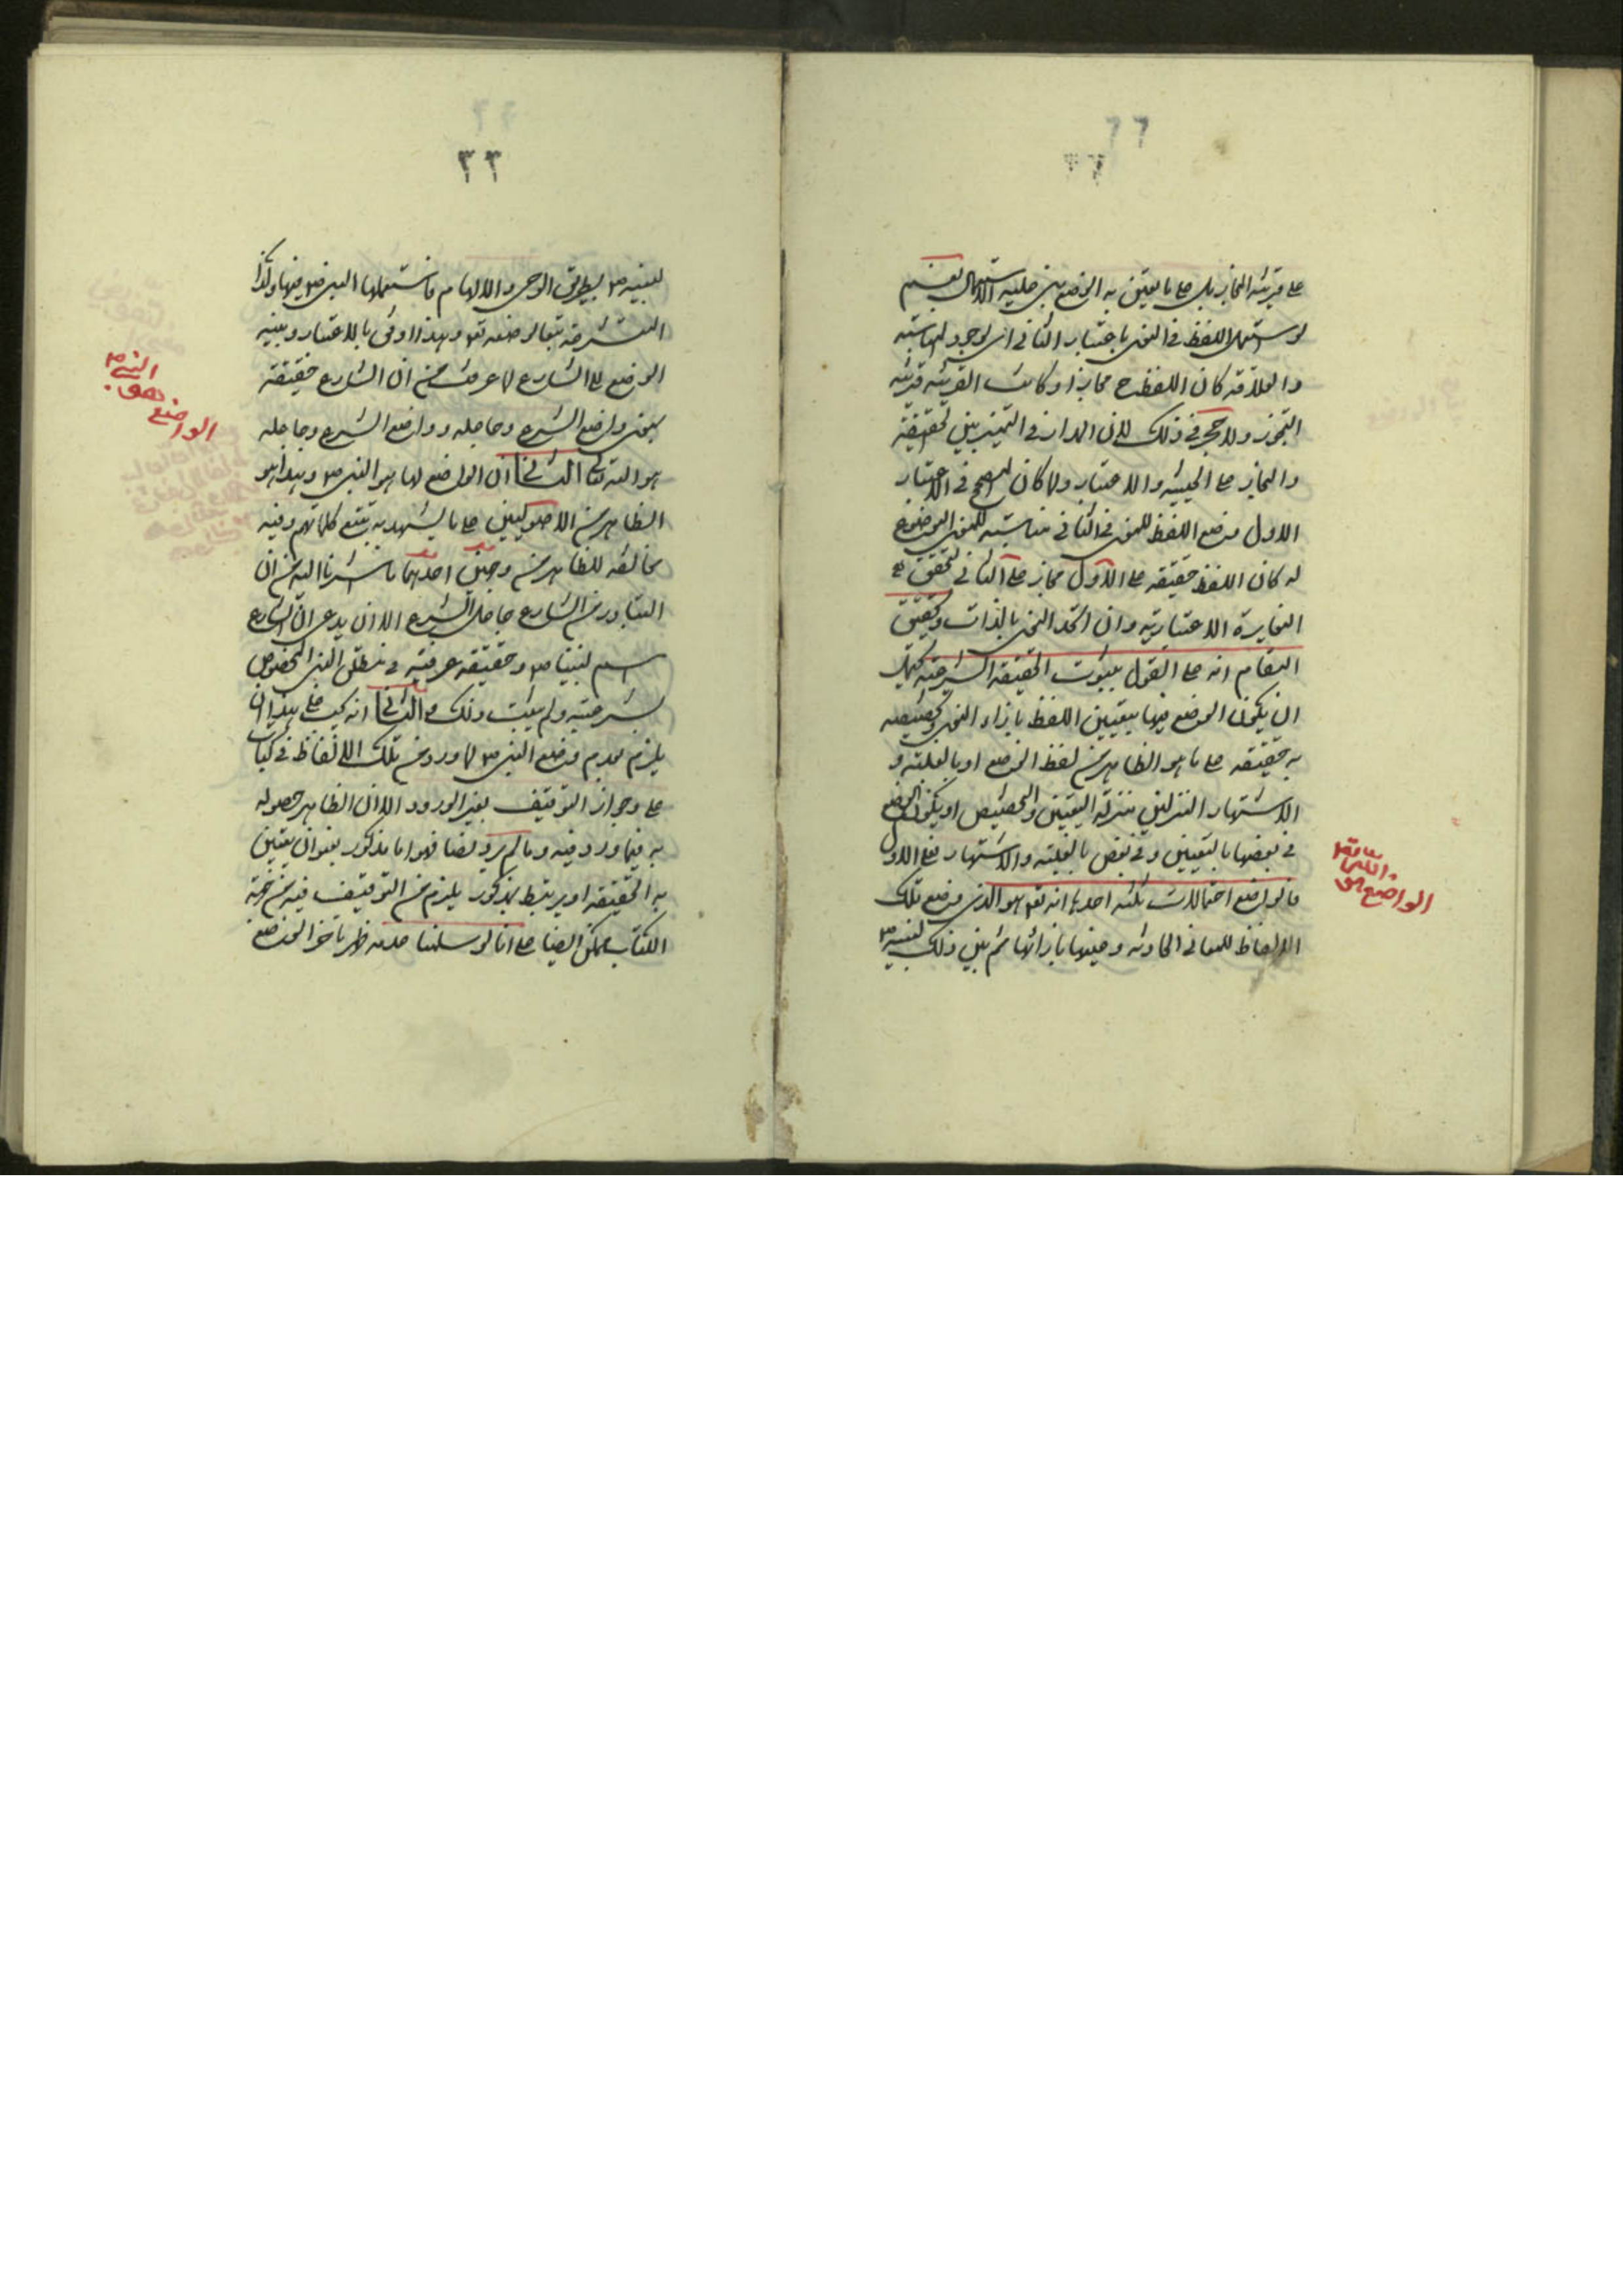 ٦٦
على قرينة المجاز بل على ما يعين به الوضع يبنى عليه الاستعمال نعم
لو استعمل اللفظ في المعنى باعتبار الثاني اى لوجود المناسبة
والعلاقة كان اللفظ ح مجازا وكانت القرينة قرينة
التجوز ولا حجر في ذلك لان المدار في التميز بين الحقيقة
والمجاز على الحيثية والاعتبار ولما كان المصحح في الاعتبار
الاول وضع اللفظ للمعنى وفي الثاني مناسبته للمعنى الموضوع
له كان اللفظ حقيقة على الاول مجاز على الثاني لتحقق
المغايرة الاعتبارية وان اتحد المعنى بالذات وتحقيق
المقام انه على القول بثبوت الحقيقة الشرعية يحتمل
ان يكون الوضع فيها بتعيين اللفظ بازاء المعنى وتخصيصه
به حقيقة على ما هو الظاهر من لفظ الوضع او بالغلبة و
الاشتهار المنزلين منزلة التعيين والتخصيص او يكون الوضع
في بعضها بالتعيين وفي بعض بالغلبة والاشتهار فعلى الاول
فالواضع احتمالات ثلثة احدها انه تعو هو الذى وضع تلك
الالفاظ للمعاني الحادثة وعينها بازائها ثم بين ذلك لنبيه ص
الواضع هو
٣٣
لنبيه ص بطريق الوحى والالهام فاستعملها النبى ص فيها وكذا
المتشرعة تبعا لوضعه تعو وهذا اوفق بالاعتبار وبنسبة
الوضع الى الشارع لما عرفت من ان الشارع حقيقة
بمعنى واضع الشرع وجاعله وواضع الشرع وجاعله
هو الله تعالى الثاني ان الواضع لها هو النبى ص وهذا هو
الظاهر من الاصوليين على ما يشهد به تتبع كلماتهم وفيه
مخالفة للظاهر من وجهين احدهما ما اشرنا اليه من ان
المتبادر من الشارع جاعل الشرع الا ان يدعى ان الشارع
اسم لنبينا ص او حقيقة عرفية في مطلق النبى المخصوص
بشرعية ولم يثبت ذلك الثاني انه يجب على هذا ان
يلزم تقدم وضع النبى ص لما ورد من تلك الالفاظ في كتاب
على وجواز التوقيف بغير الورود الا ان الظاهر حصوله
به فيما ورد فيه وما لم يرد ايضا فهو اما مذكور بعنوان يتعين
به الحقيقة او يرتبط بمذكور يلزم من التوقيف فيه من جهة
الكتاب يمكن ايضا على انا لو سلمنا عدم ظهر تاخر الوضع
الواضع هو
النبى ص